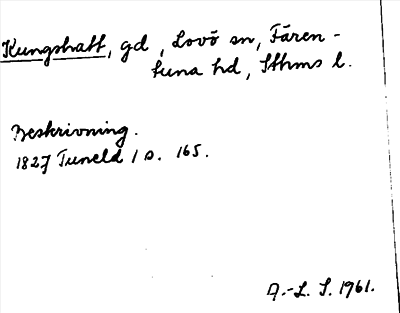 Kungshatt, gd, Lovö sn, Fären-
tuna hd, Sthms l.
Beskrivning.
1827 Tuneld I s. 165.
A.-L. S. 1961.